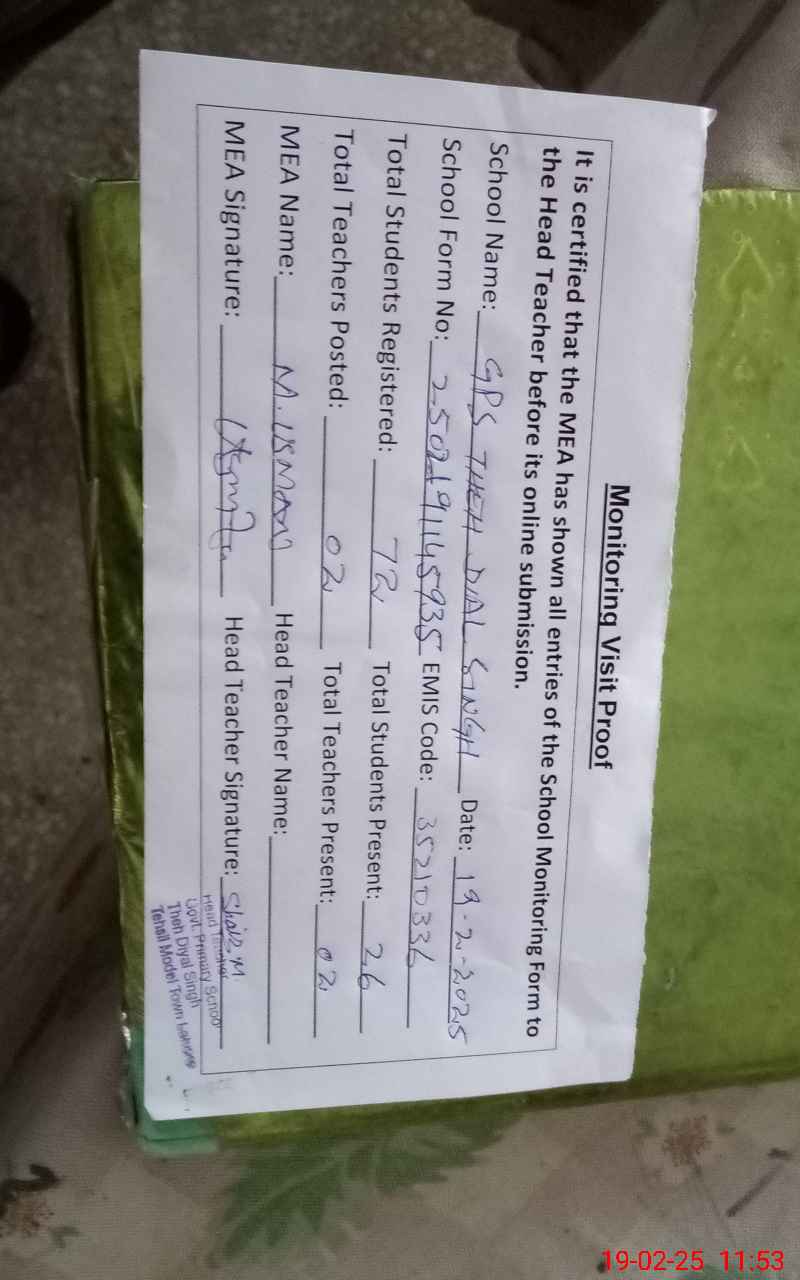 Monitoring Visit Proof
It is certified that the MEA has shown all entries of the School Monitoring Form to
the Head Teacher before its online submission.
School Name: GPS THEH DIAL SINGH Date: 19-2-2025
School Form No: 250219114593S EMIS Code: 35210336
Total Students Registered: 72 Total Students Present: 26
Total Teachers Posted: 02 Total Teachers Present: 02
MEA Name: M. USMAN Head Teacher Name:
MEA Signature: Head Teacher Signature:
Head Teacher
Govt. Primary School
Theh Diyal Singh
Tehsil Model Town Lahore
19-02-25 11:53